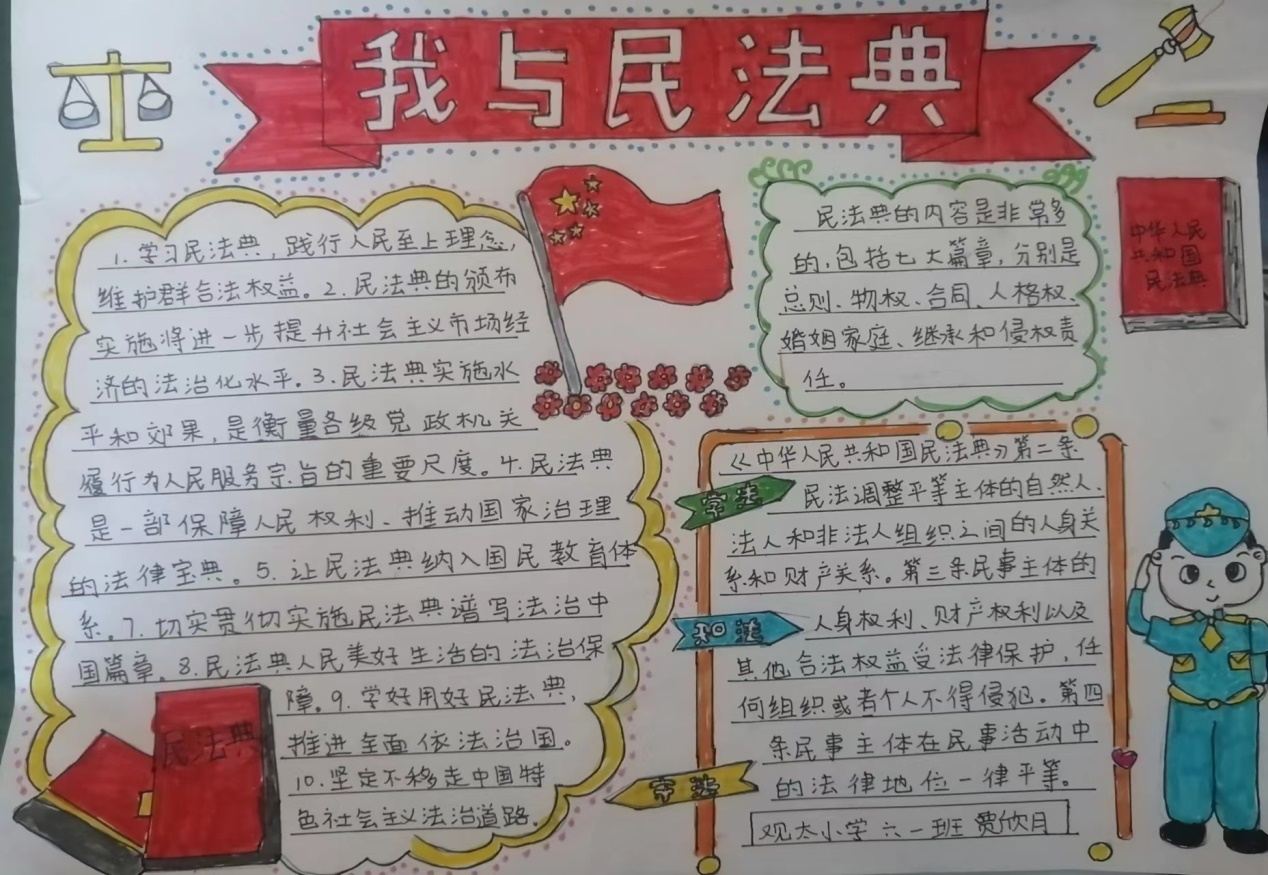 我与民法典
1.学习民法典，践行人民至上理念，
维护群合法权益。2.民法典的颁布
实施将进一步提升社会主义市场经
济的法治化水平。3.民法典实施水
平和效果，是衡量各级党政机关
履行为人民服务宗旨的重要尺度。4.民法典
是一部保障人民权利、推动国家治理
的法律宝典。5.让民法典纳入国民教育体
系。7.切实贯彻实施民法典谱写法治中
国篇章。8.民法典人民美好生活的法治保
障。9.学好用好民法典，
推进全面依法治国。
10.坚定不移走中国特
色社会主义法治道路。
民法典
民法典的内容是非常多
的，包括七大篇章，分别是
总则、物权、合同、人格权、
婚姻家庭、继承和侵权责
任。
中华人民
共和国
民法典
《中华人民共和国民法典》第二条
民法调整平等主体的自然人、
法人和非法人组织之间的人身关
系和财产关系。第三条民事主体的
人身权利、财产权利以及
其他合法权益受法律保护，任
何组织或者个人不得侵犯。第四
条民事主体在民事活动中
的法律地位一律平等。
学法
知法
守法
观太小学六一班 贾欣月